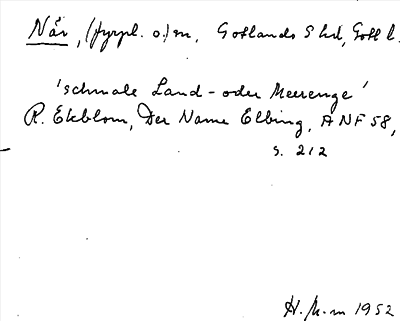 När, (fyrpl. o.) sn, Gotlands S hd, Gotl l.
'schmale Land- oder Meerenge'
R. Ekblom, Der Name Elbing, ANF 58,
s. 212
H. M-m 1952